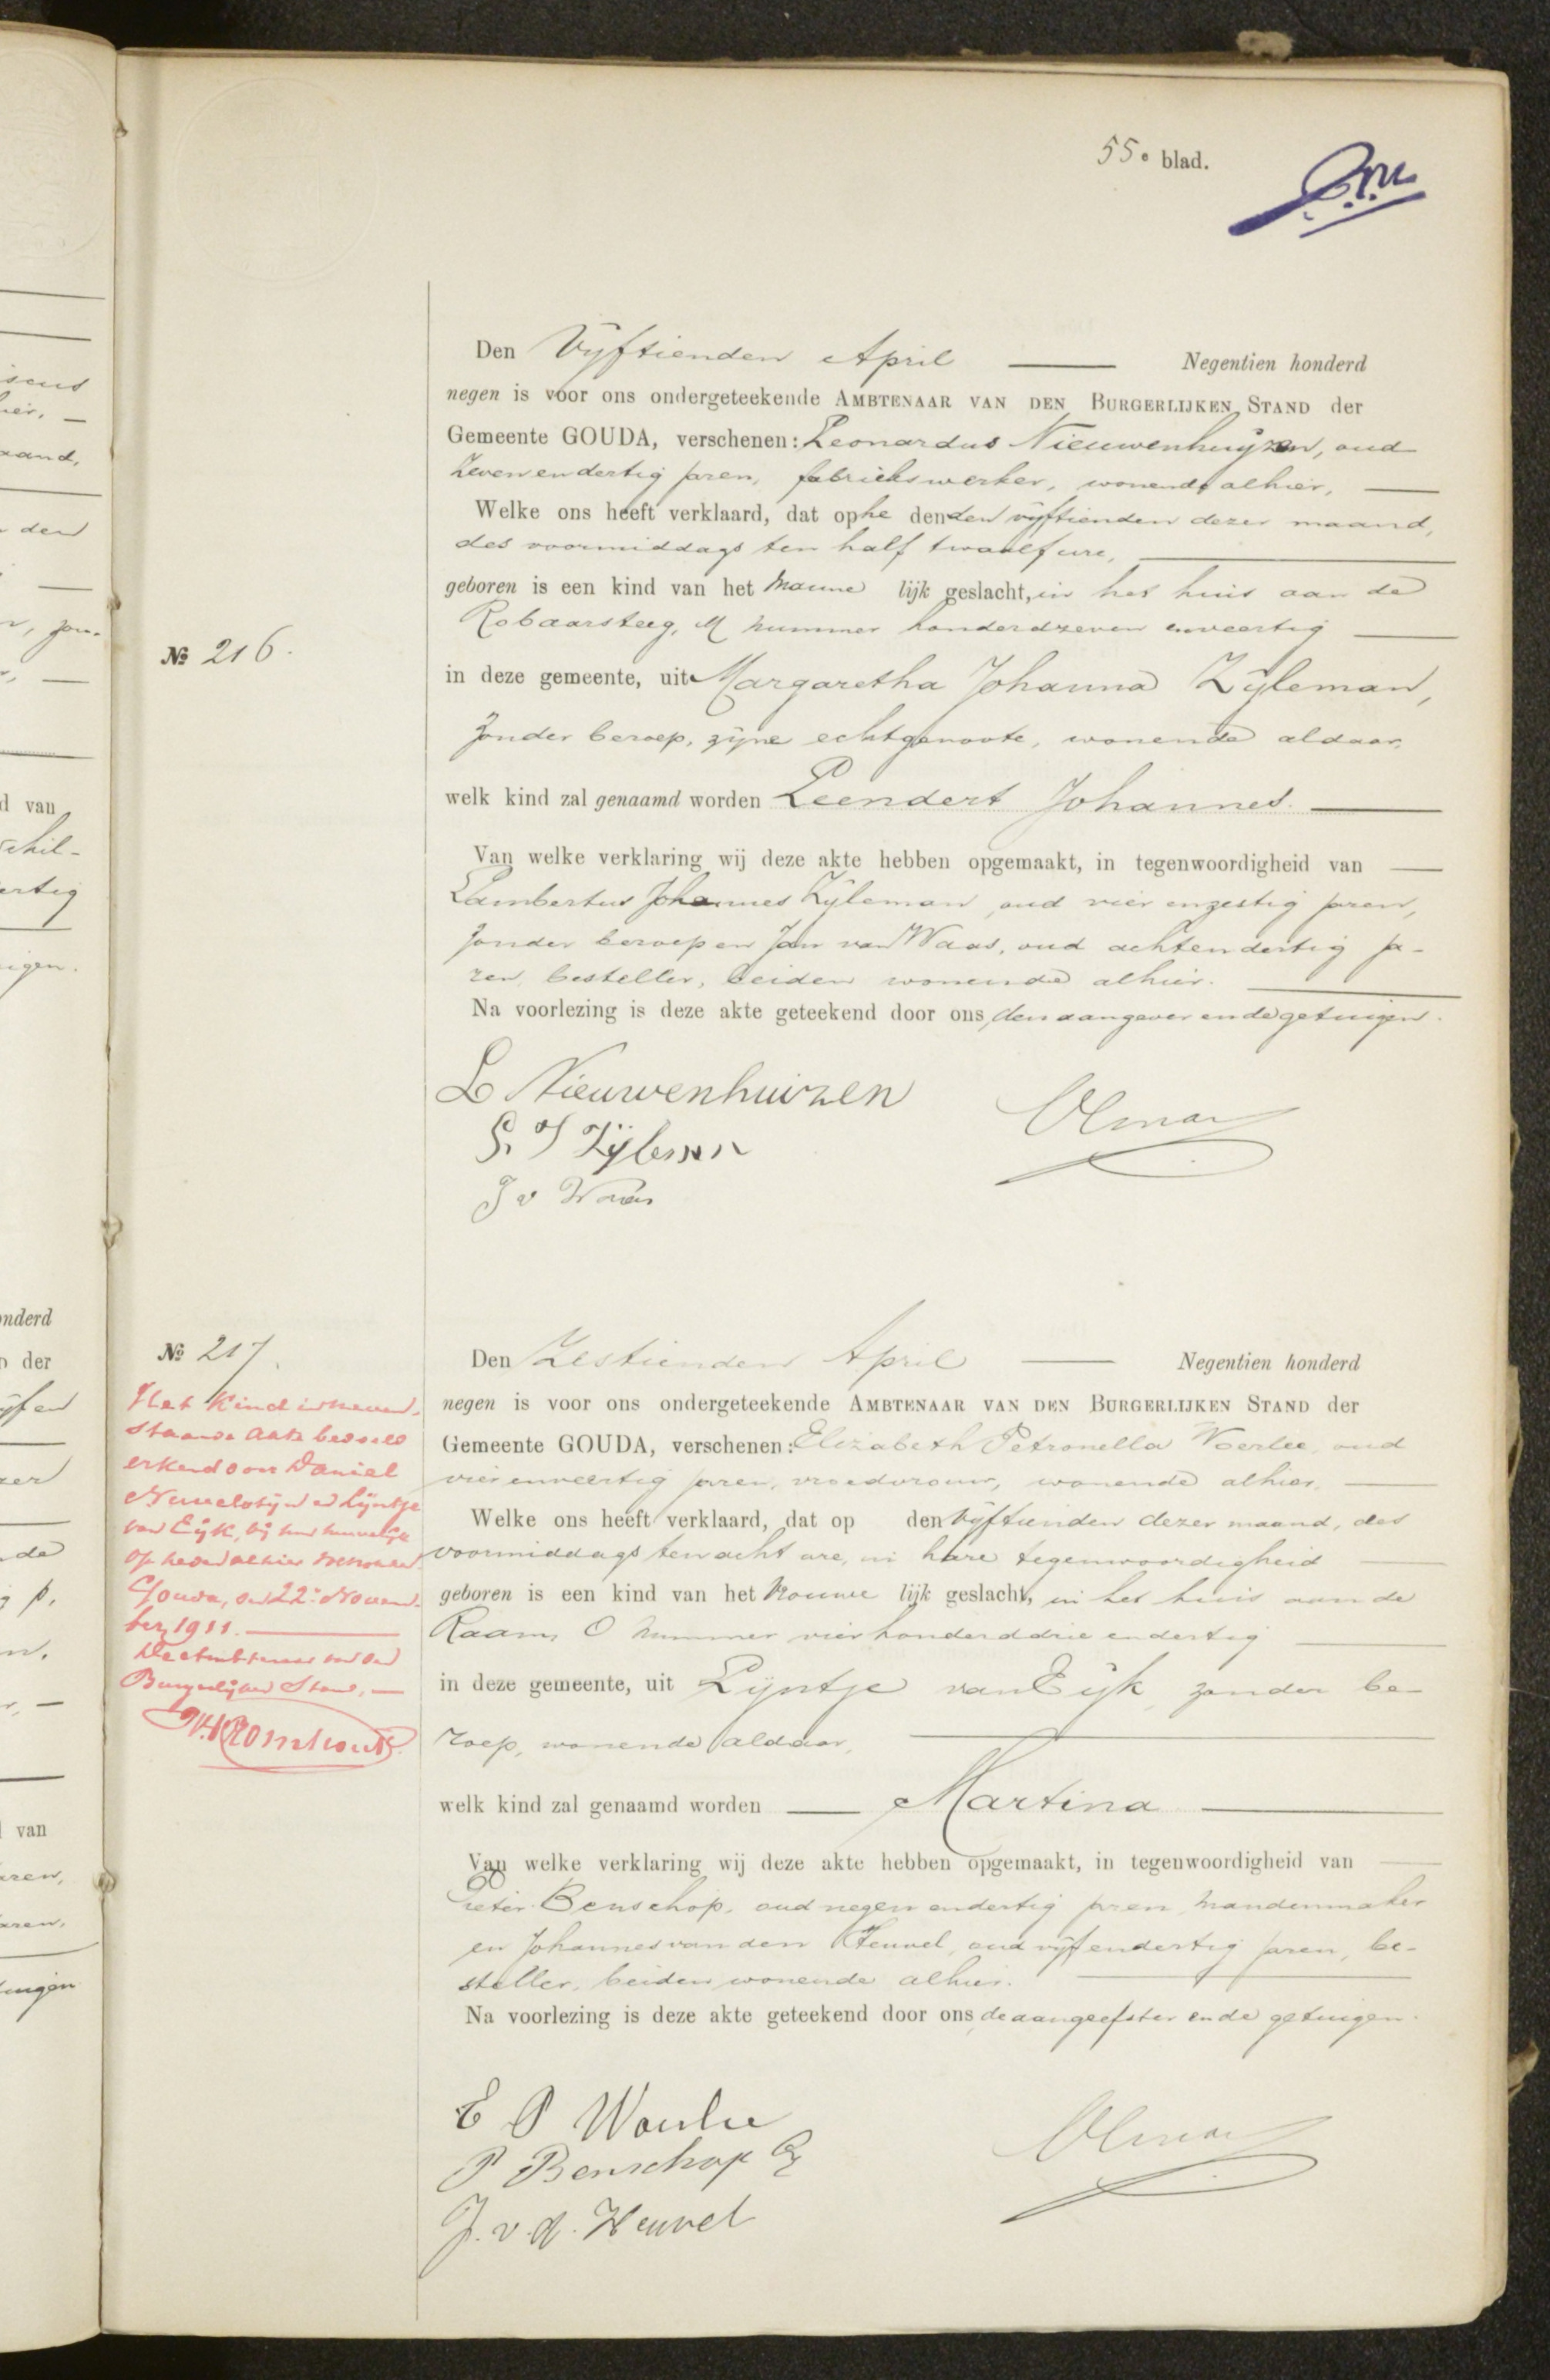 55e blad.
Den Vijftienden April Negentien honderd
negen is voor ons ondergeteekende AMBTENAAR VAN DEN BURGERLIJKEN STAND der
Gemeente GOUDA, verschenen: Leonardus Nieuwenhuijzen, oud
zevenendertig jaren, fabriekswerker, wonende alhier,
Welke ons heeft verklaard, dat op he den den vijftienden dezer maand,
des voormiddags ten half twaalf ure,
geboren is een kind van het manne lijk geslacht, in het huis aan de
Robaarsteeg, M nummer honderdzeven enveertig
№ 216.
in deze gemeente, uit Margaretha Johanna Zijleman,
zonder beroep, zijne echtgenoote, wonende aldaar,
welk kind zal genaamd worden Leendert Johannes.
Van welke verklaring wij deze akte hebben opgemaakt, in tegenwoordigheid van
Lambertus Johannes Zijleman, oud vier enzestig jaren,
zonder beroep en Jan van Waas, oud achtendertig ja-
ren, besteller, beiden wonende alhier.
Na voorlezing is deze akte geteekend door ons, den aangever en de getuigen.
L Nieuwenhuizen
L. J Zijleman
J v Waas
№ 217.
Het kind in neven-
staande akte bedoeld
erkend door Daniel
en Lijntje
van Eijk, bij hun huwelijk
op heden alhier voltrokken.
Gouda, den 22n Novem-
ber 1911.
De Ambtenaar van den
Burgerlijken Stand,
Den Zestienden April Negentien honderd
negen is voor ons ondergeteekende AMBTENAAR VAN DEN BURGERLIJKEN STAND der
Gemeente GOUDA, verschenen: Elizabeth Petronella Woerlee, oud
vier enveertig jaren, vroedvrouw, wonende alhier,
Welke ons heeft verklaard, dat op den vijftienden dezer maand, des
voormiddags ten acht ure, in hare tegenwoordigheid
geboren is een kind van het vrouwe lijk geslacht, in het huis aan de
Raam, O nummer vierhonderddrie endertig
in deze gemeente, uit Lijntje van Eijk, zonder be-
roep, wonende aldaar,
welk kind zal genaamd worden Martina
Van welke verklaring wij deze akte hebben opgemaakt, in tegenwoordigheid van
Pieter Benschop, oud negen endertig jaren, mandenmaker
en Johannes van den Heuvel, oud vijfendertig jaren, be-
steller, beiden wonende alhier.
Na voorlezing is deze akte geteekend door ons, de aangeefster en de getuigen.
E P Woerlee
P Benschop
J. v. d. Heuvel